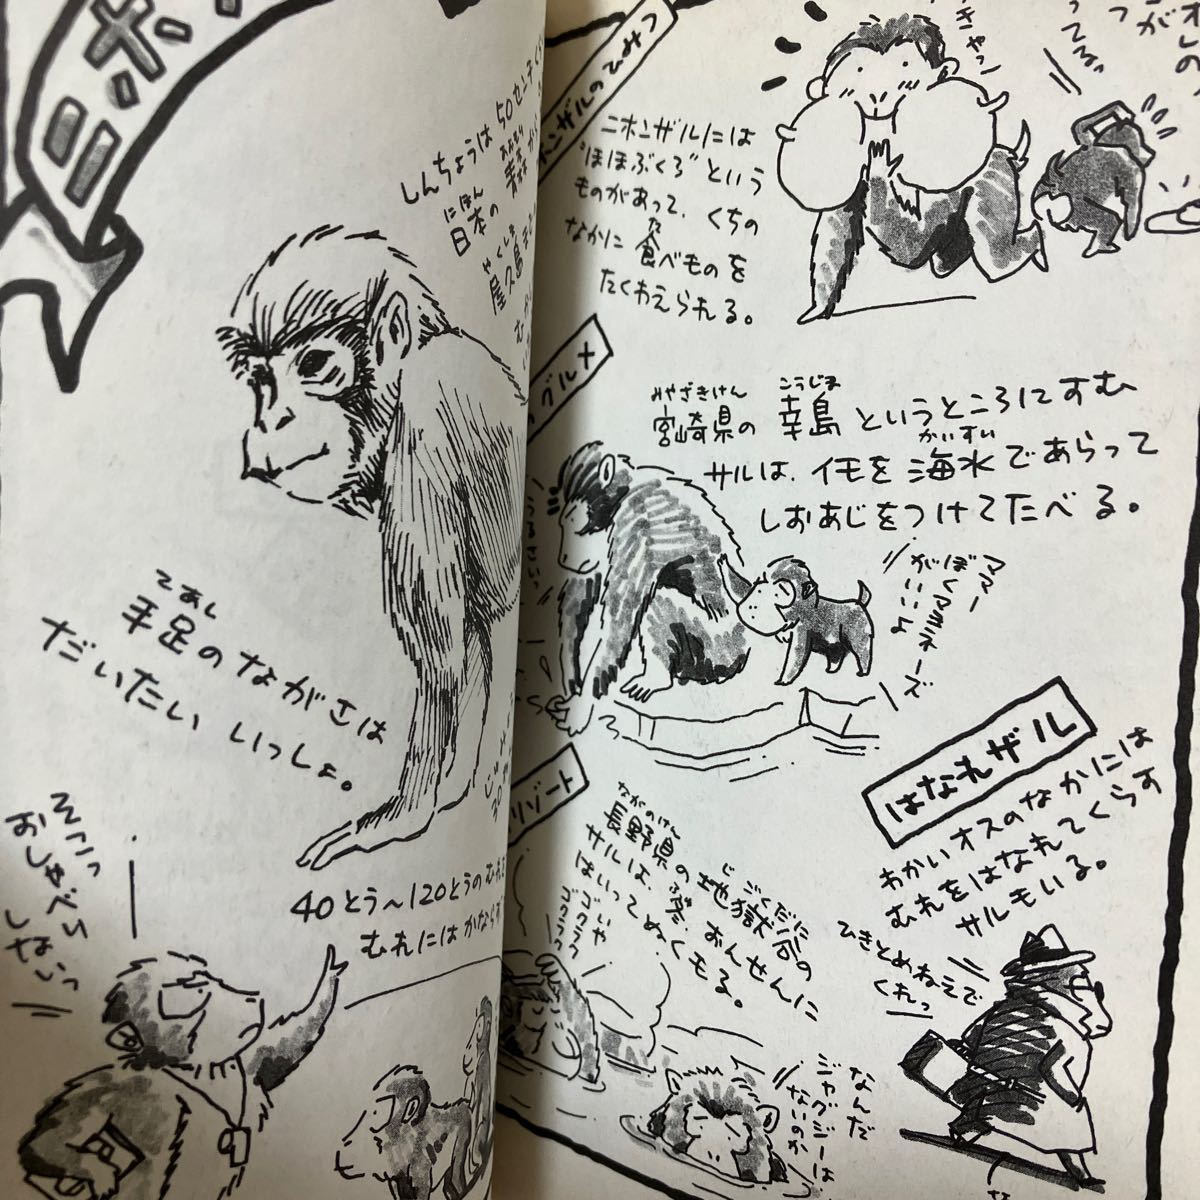 ニホン
しんちょうは50センチ
にほん
あおもり
日本の青森から
やくしま
屋久島
てあし
手足のながさは
だいたいいっしょ。
40とう〜120とうのむれ
むれにはかならず
そこっ
おしゃべり
しないっ
ホンザルのひみつ
ニホンザルには
"ほほぶくろ"という
ものがあって、くちの
た
なかに食べものを
たくわえられる。
グルメ
みやざきけん
こうじま
宮崎県の幸島というところにすむ
かいすい
サルは、イモを海水であらって
しおあじをつけてたべる。
ママー
ぼくマヨネーズ
がいいよ
うるさいっ
リゾート
ながのけん
じごくだに
長野県の地獄谷の
ふゆ
サルは、冬、おんせんに
はいってぬくもる。
なんだ
ジャグジーは
ないのか
はなれザル
わかいオスのなかには
むれをはなれてくらす
サルもいる。
ひきとめねえで
くれっ